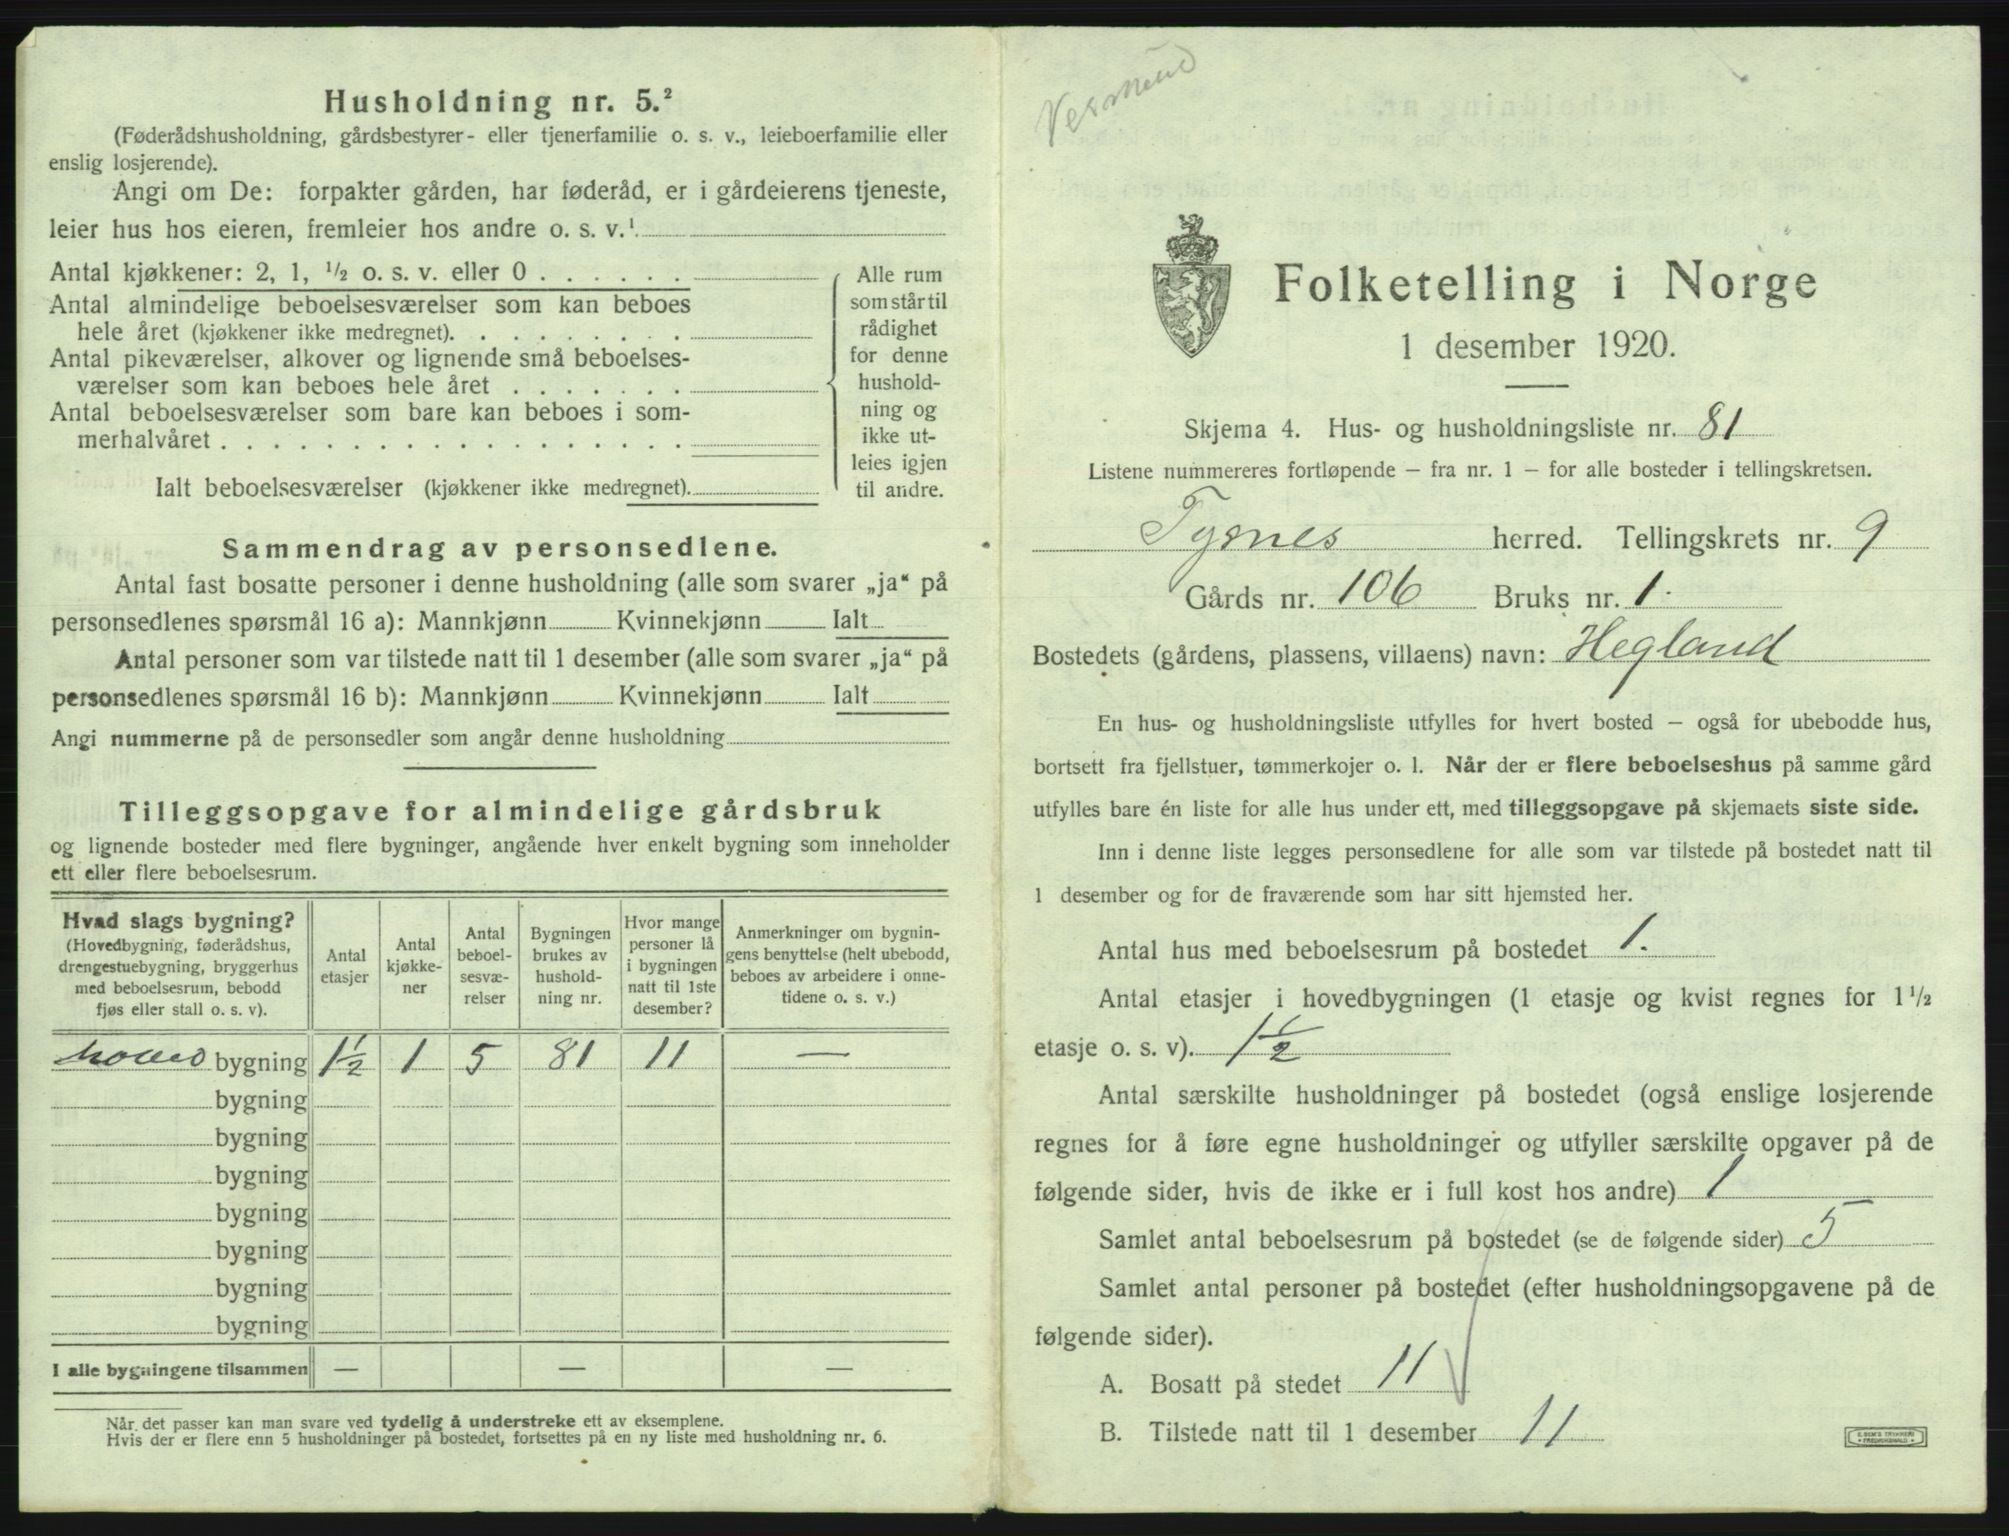 Husholdning nr. 5.²
(Føderådshusholdning, gårdsbestyrer- eller tjenerfamilie o. s. v., leieboerfamilie eller
enslig losjerende).
Angi om De: forpakter gården, har føderåd, er i gårdeierens tjeneste,
leier hus hos eieren, fremleier hos andre o. s. v.¹
Antal kjøkkener: 2, 1, ½ o. s. v. eller 0 . . . . . .
Antal almindelige beboelsesværelser som kan beboes
hele året (kjøkkener ikke medregnet). . . . . . . . .
Antal pikeværelser, alkover og lignende små beboelses-
værelser som kan beboes hele året . . . . . . .
Antal beboelsesværelser som bare kan beboes i som-
merhalvåret . . . . . . . . . . . . . . . . . .
Ialt beboelsesværelser (kjøkkener ikke medregnet).
Alle rum
som står til
rådighet
for denne
hushold-
ning og
ikke ut-
leies igjen
til andre.
Sammendrag av personsedlene.
Antal fast bosatte personer i denne husholdning (alle som svarer „ja“ på
personsedlenes spørsmål 16 a): Mannkjønn Kvinnekjønn Ialt
Antal personer som var tilstede natt til 1 desember (alle som svarer „ja“ på
personsedlenes spørsmål 16 b): Mannkjønn Kvinnekjønn Ialt
Angi nummerne på de personsedler som angår denne husholdning
Tilleggsopgave for almindelige gårdsbruk
og lignende bosteder med flere bygninger, angående hver enkelt bygning som inneholder
ett eller flere beboelsesrum.
Hvad slags bygning?
(Hovedbygning, føderådshus,
drengestuebygning, bryggerhus
med beboelsesrum, bebodd
fjøs eller stall o. s. v).
Antal
etasjer
Antal
kjøkke-
ner
Antal
beboel-
sesvæ-
relser
Bygningen
brukes av
hushold-
ning nr.
Hvor mange
personer lå
i bygningen
natt til 1ste
desember?
Anmerkninger om bygnin-
gens benyttelse (helt ubebodd,
beboes av arbeidere i onne-
tidene o. s. v.)
Hoved bygning 1½ 1 5 81 11 —
bygning
bygning
bygning
bygning
bygning
bygning
bygning
I alle bygningene tilsammen — — —
Når det passer kan man svare ved tydelig å understreke ett av eksemplene.
Hvis der er flere enn 5 husholdninger på bostedet, fortsettes på en ny liste med husholdning nr. 6.
Folketelling i Norge
1 desember 1920.
Skjema 4. Hus- og husholdningsliste nr. 81
Listene nummereres fortløpende – fra nr. 1 – for alle bosteder i tellingskretsen.
Tysnes herred. Tellingskrets nr. 9
Gårds nr. 106 Bruks nr. 1.
Bostedets (gårdens, plassens, villaens) navn: Hegland
En hus- og husholdningsliste utfylles for hvert bosted – også for ubebodde hus,
bortsett fra fjellstuer, tømmerkojer o. l. Når der er flere beboelseshus på samme gård
utfylles bare én liste for alle hus under ett, med tilleggsopgave på skjemaets siste side.
Inn i denne liste legges personsedlene for alle som var tilstede på bostedet natt til
1 desember og for de fraværende som har sitt hjemsted her.
Antal hus med beboelsesrum på bostedet 1.
Antal etasjer i hovedbygningen (1 etasje og kvist regnes for 1½
etasje o. s. v). 1½
Antal særskilte husholdninger på bostedet (også enslige losjerende
regnes for å føre egne husholdninger og utfyller særskilte opgaver på de
følgende sider, hvis de ikke er i full kost hos andre) 1
Samlet antal beboelsesrum på bostedet (se de følgende sider) 5
Samlet antal personer på bostedet (efter husholdningsopgavene på de
følgende sider).
A. Bosatt på stedet 11
B. Tilstede natt til 1 desember 11